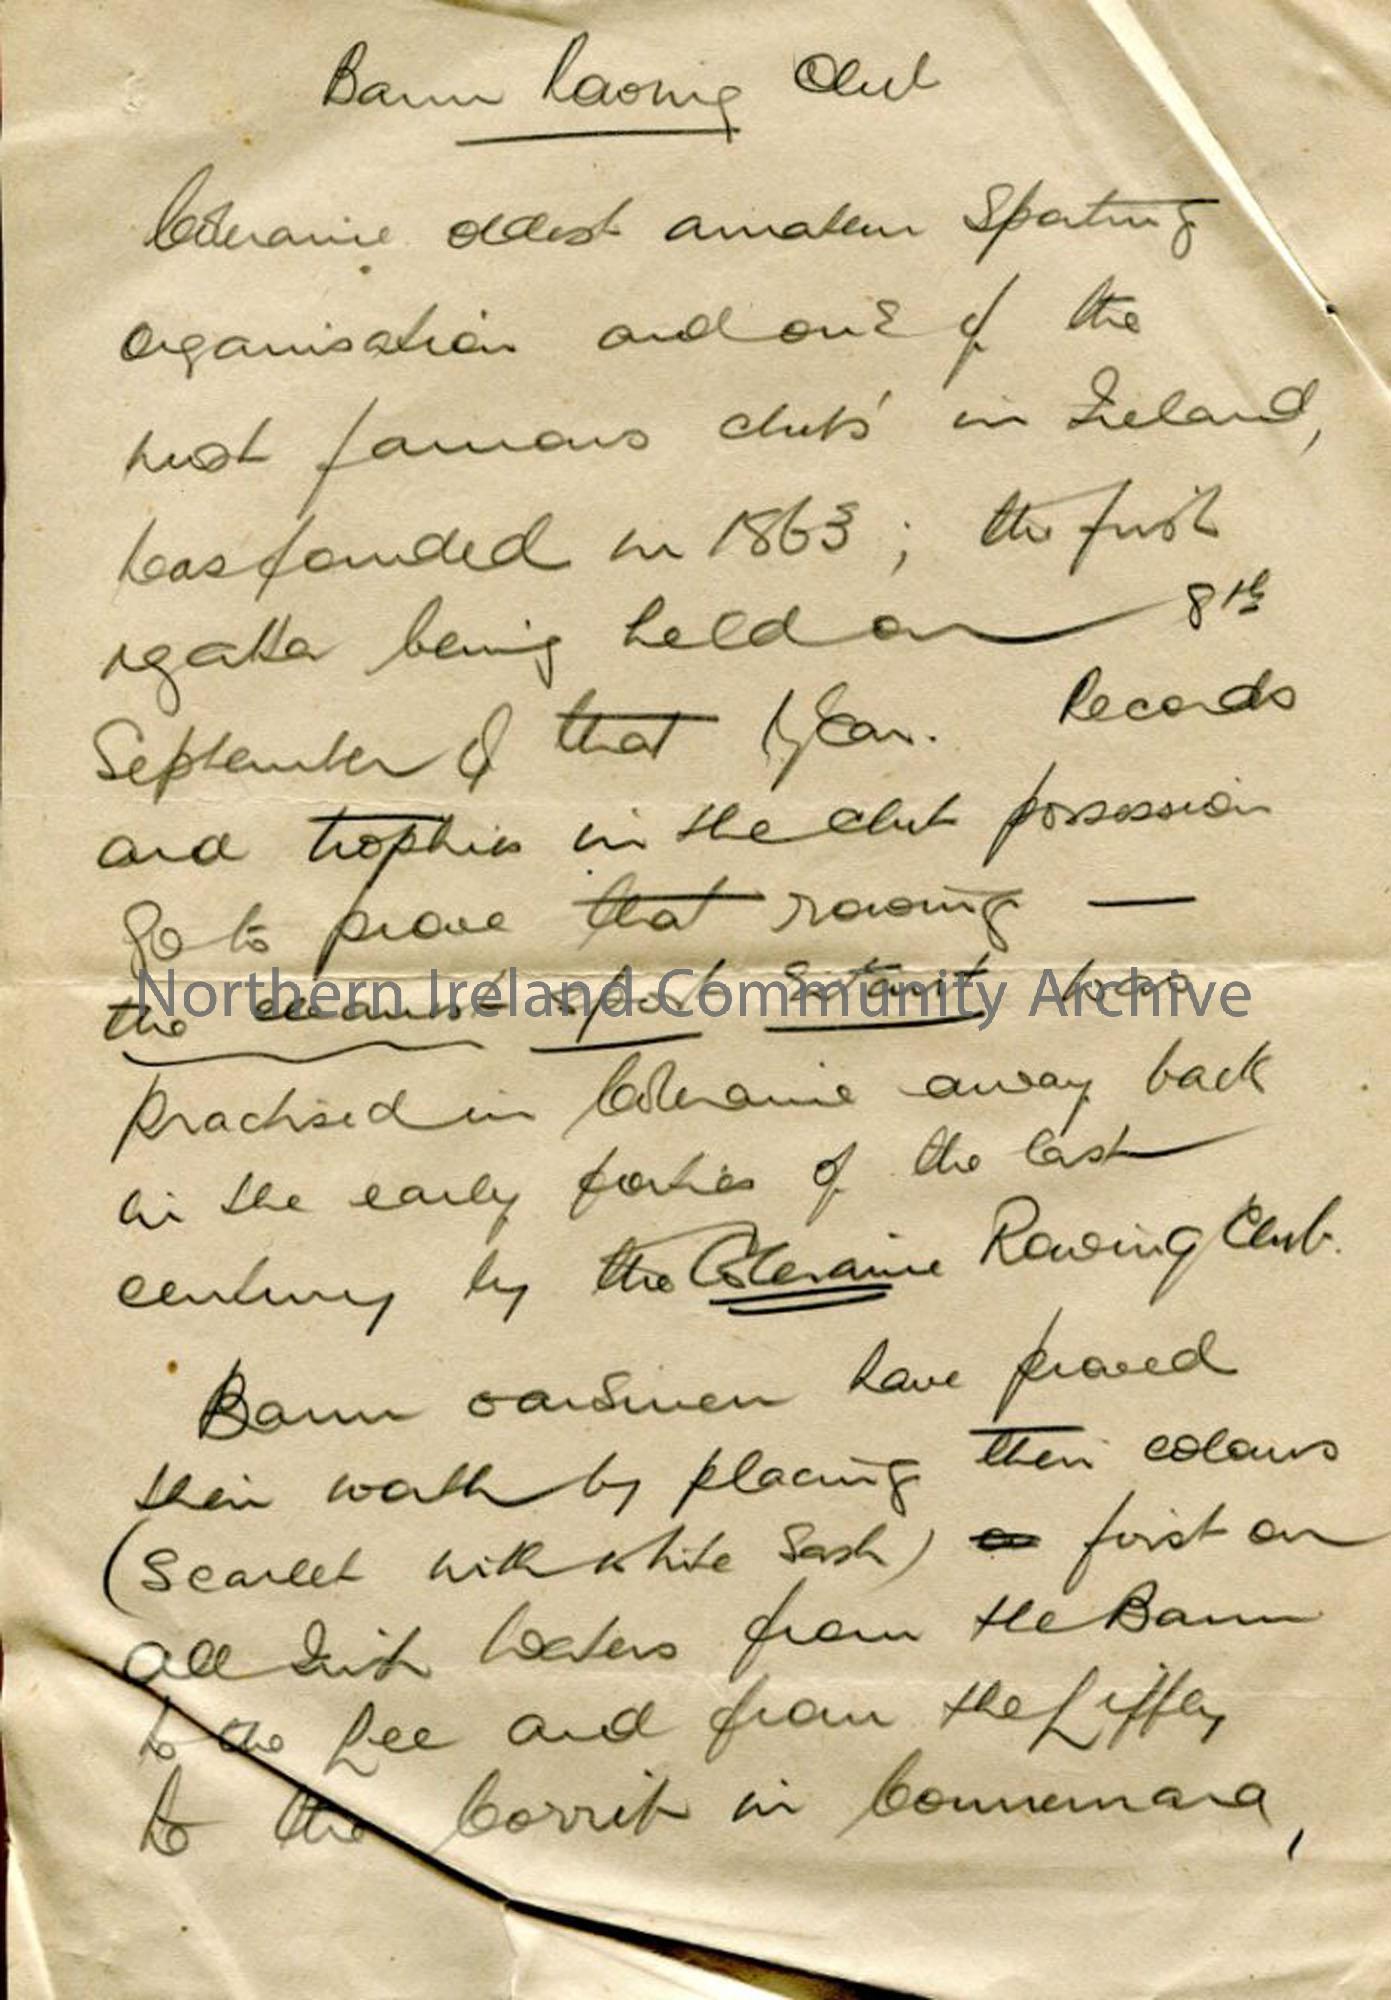 Bann Rowing Club
Coleraine oldest amateur Sporting
organisation and one of the
most famous clubs' in Ireland,
was founded in 1863; the first
regatta being held on 8th
September of that year. Records
and trophies in the club possession
go to prove that rowing —
the cleanest sport extant was
Practised in Coleraine away back
in the early forties of the last
century by the Coleraine Rowing Club.
Bann oarsmen have proved
their worth by placing their colours
(Scarlet with white Sash) first on
all Irish waters from the Bann
to the Lee and from the Liffey
to the Corrib in Connemara,
Northern Ireland Community Archive